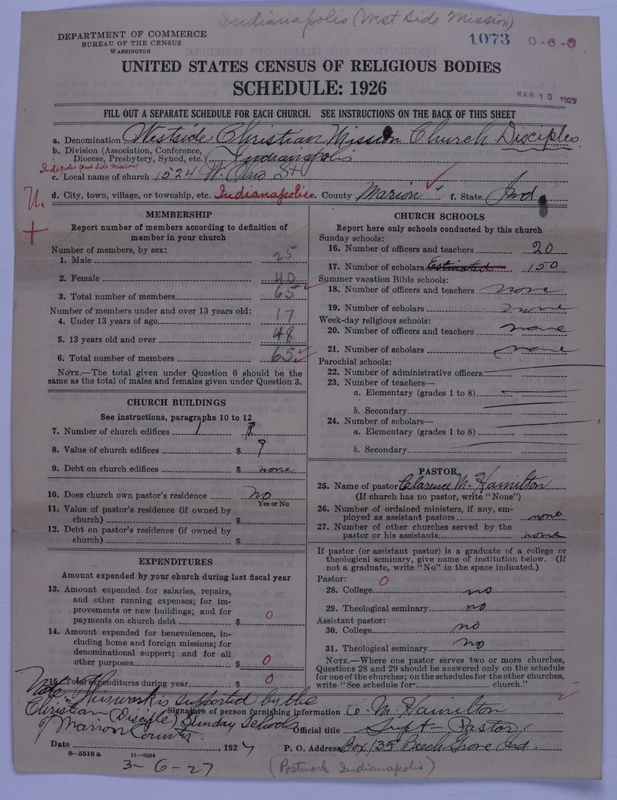 Indianapolis (West Side Mission)
DEPARTMENT OF COMMERCE
BUREAU OF THE CENSUS
WASHINGTON
1073 0-6-0
MAR 10 1927
UNITED STATES CENSUS OF RELIGIOUS BODIES
SCHEDULE: 1926
FILL OUT A SEPARATE SCHEDULE FOR EACH CHURCH. SEE INSTRUCTIONS ON THE BACK OF THIS SHEET
a. Denomination Westside Christian Mission Church Disciples
b. Division (Association, Conference,
Diocese, Presbytery, Synod, etc.) Indianapolis
c. Local name of church 1524 W. Ohio St
d. City, town, village, or township, etc. Indianapolis e. County Marion f. State Ind
MEMBERSHIP
Report number of members according to definition of
member in your church
Number of members, by sex:
1. Male 25
2. Female 40
3. Total number of members 65
Number of members under and over 13 years old:
4. Under 13 years of age 17
5. 13 years old and over 48
6. Total number of members 65
NOTE.—The total given under Question 6 should be
same as the total of males and females given under Question 3.
CHURCH BUILDINGS
See instructions, paragraphs 10 to 12
7. Number of church edifices 1
8. Value of church edifices $ ?
9. Debt on church edifices $ none
10. Does church own pastor's residence no
Yes or No
11. Value of pastor's residence (if owned by
church) $
12. Debt on pastor's residence (if owned by
church) $
EXPENDITURES
Amount expended by your church during last fiscal year
13. Amount expended for salaries, repairs,
and other running expenses; for im-
provements or new buildings; and for
payments on church debt $ 0
14. Amount expended for benevolences, in-
cluding home and foreign missions; for
denominational support; and for all
other purposes $ 0
15. Total expenditures during year $ 0
CHURCH SCHOOLS
Report here only schools conducted by this church
Sunday schools:
16. Number of officers and teachers 20
17. Number of scholars Estimated 150
Summer vacation Bible schools:
18. Number of officers and teachers none
19. Number of scholars none
Week-day religious schools:
20. Number of officers and teachers none
21. Number of scholars none
Parochial schools:
22. Number of administrative officers
23. Number of teachers—
a. Elementary (grades 1 to 8)
b. Secondary
24. Number of scholars—
a. Elementary (grades 1 to 8)
b. Secondary
PASTOR
25. Name of pastor Clarence M. Hamilton
(If church has no pastor, write "None")
26. Number of ordained ministers, if any, em-
ployed as assistant pastors none
27. Number of other churches served by the
pastor or his assistants none
If pastor (or assistant pastor) is a graduate of a college or
theological seminary, give name of institution below. (If
not a graduate, write "No" in the space indicated.)
Pastor: 0
28. College no
29. Theological seminary no
Assistant pastor:
30. College no
31. Theological seminary no
NOTE.—Where one pastor serves two or more churches,
Questions 28 and 29 should be answered only on the schedule
for one of the churches; on the schedules for the other churches,
write "See schedule for church."
Note This work is supported by the
Christian (Disciple) Sunday Schools
of Marion County.
Signature of person furnishing information C. M. Hamilton
Official title Supt - Pastor
Date 3-6-27, 1927 P. O. Address Box 135 Beech Grove Ind.
8-5518 a 11-9034
(Postmark Indianapolis)